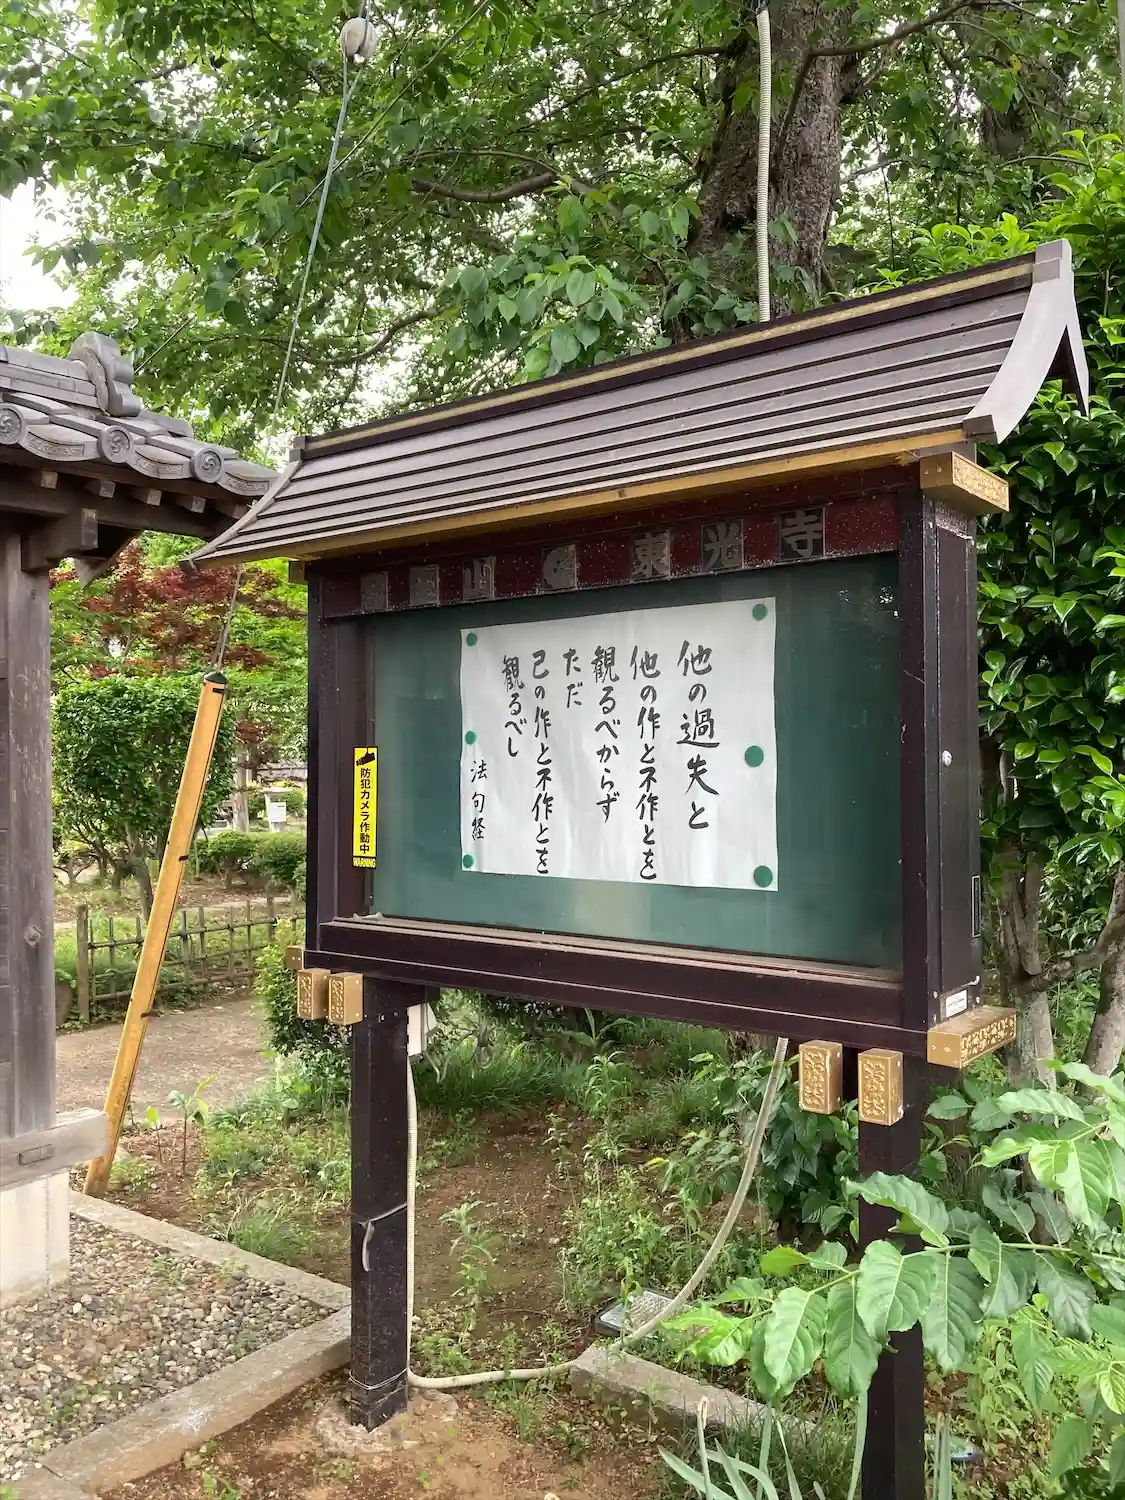 山
東光寺
他の過失と
他の作と不作とを
観るべからず
ただ
己の作と不作とを
観るべし
法句経
防犯カメラ作動中
WARNING